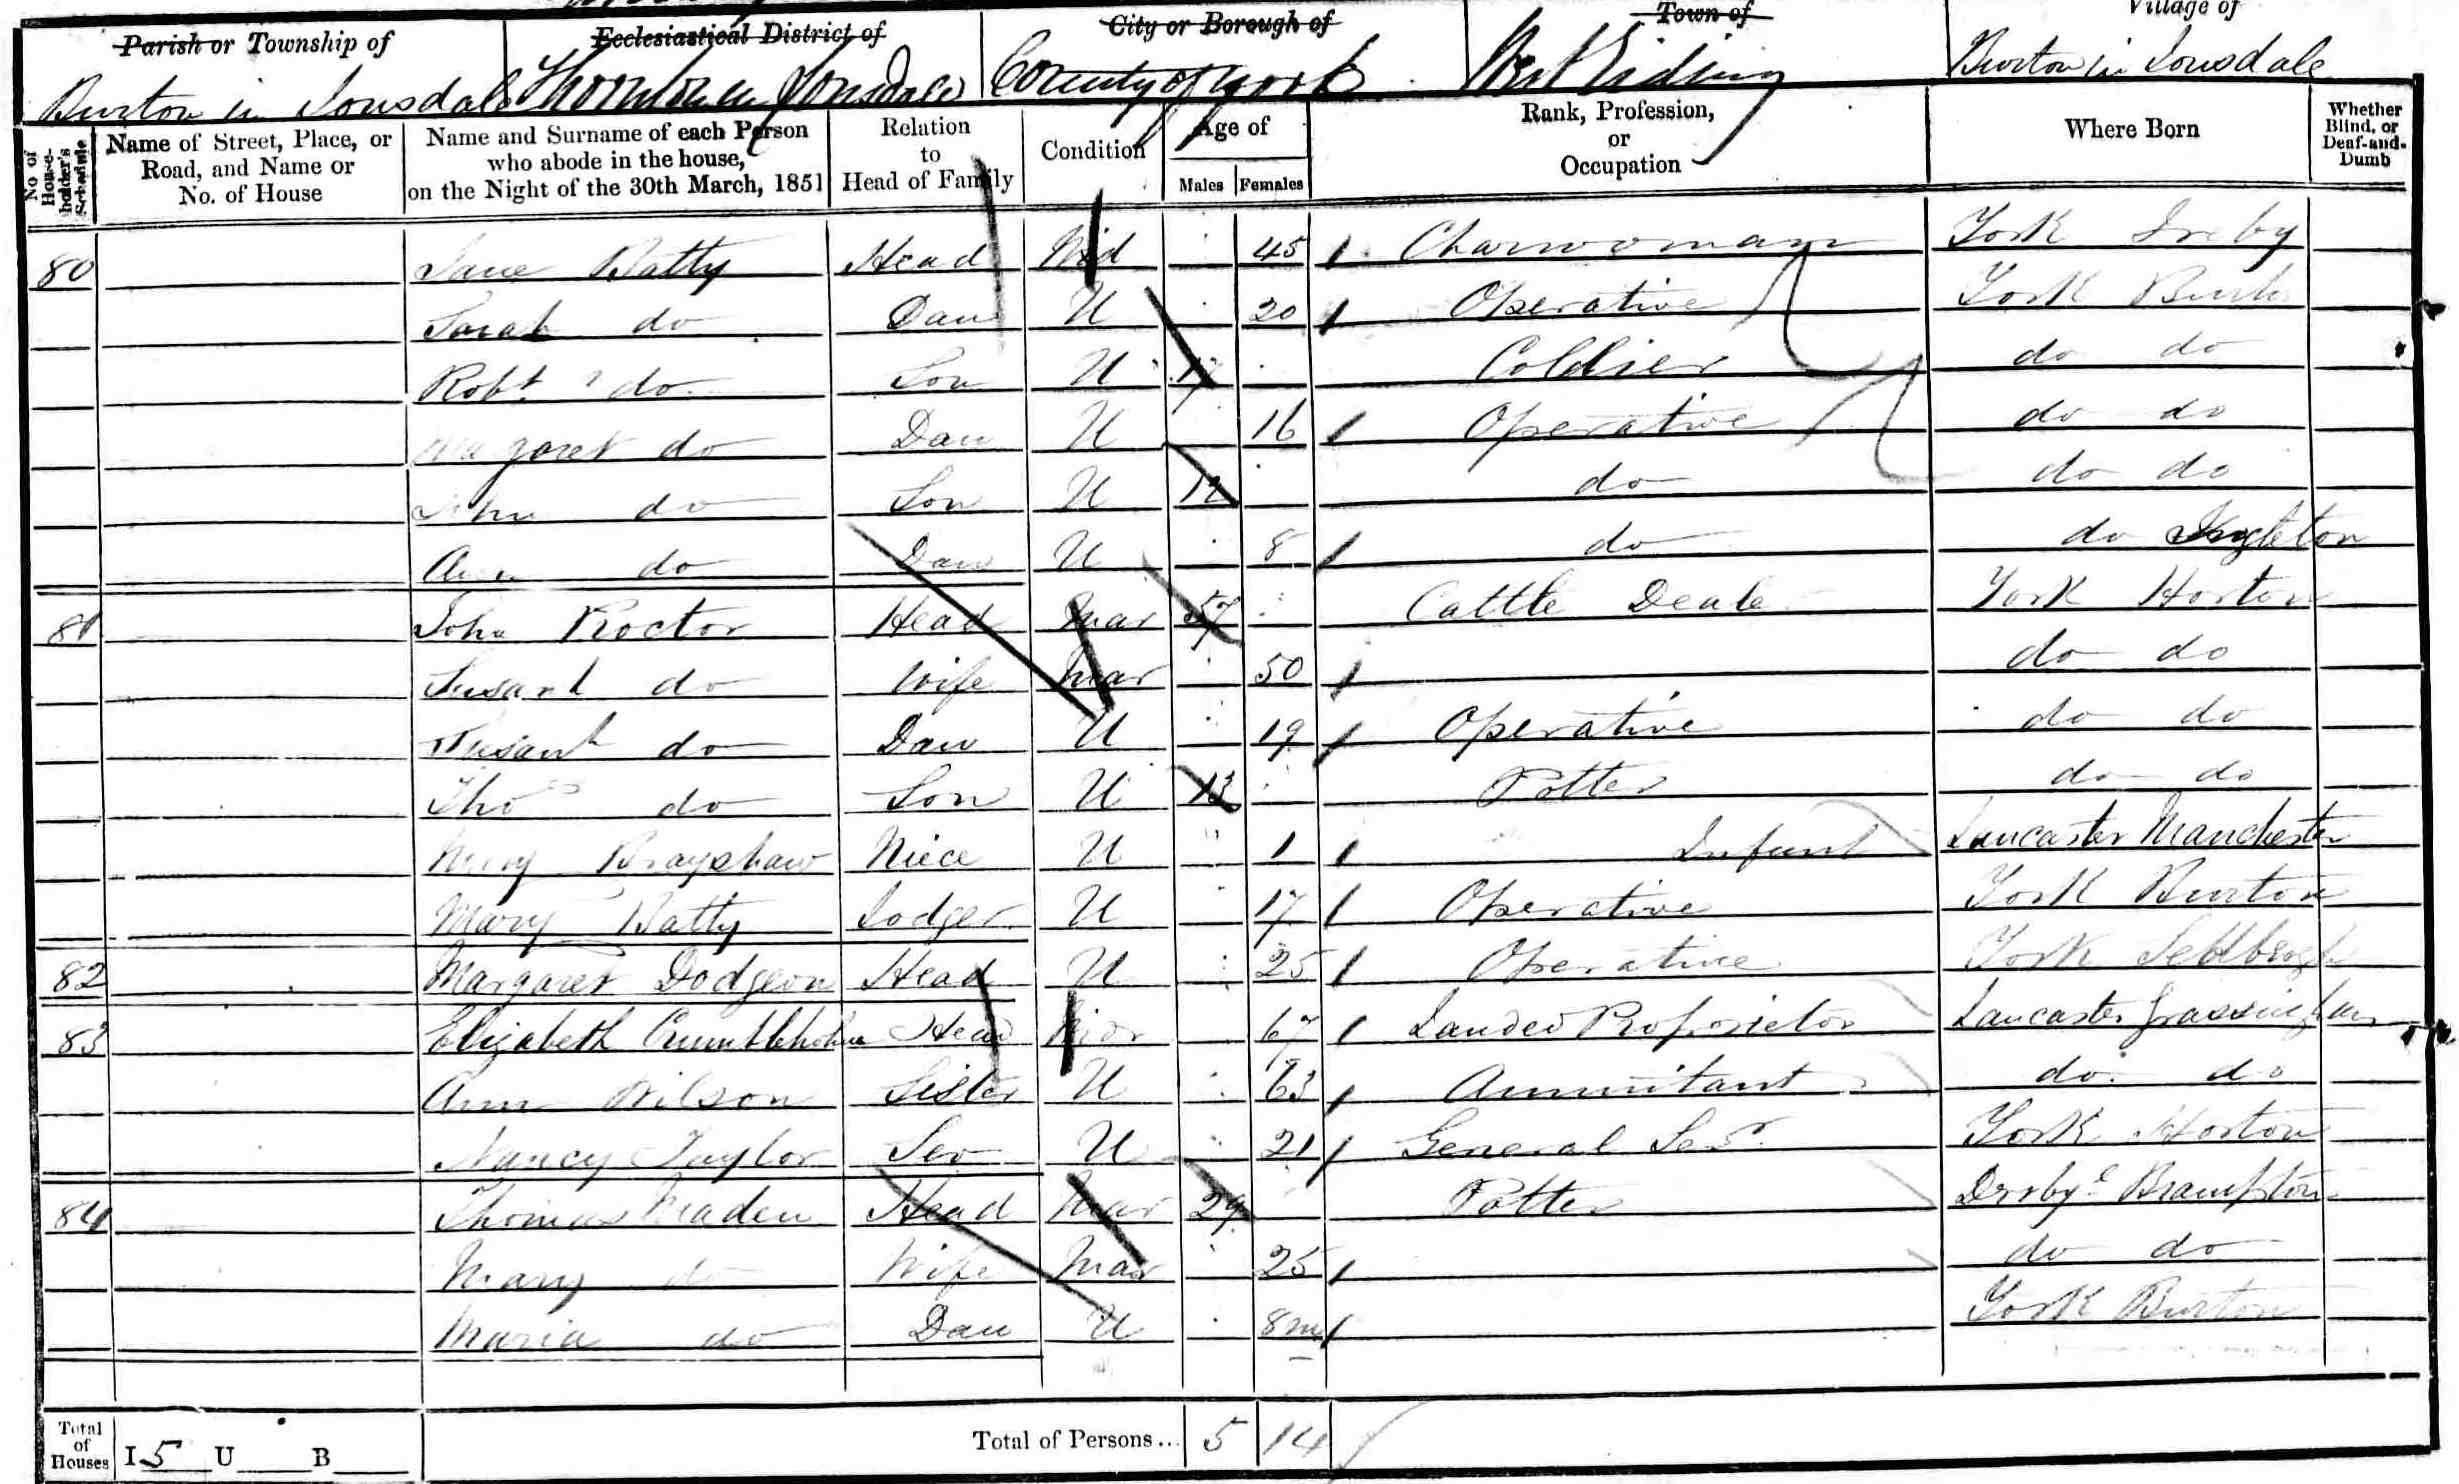 Parish or Township of Ecclesiastical District of City or Borough of Town of Village of
Burton in Lonsdale Thornton in Lonsdale County of York West Riding Burton in Lonsdale
No of House-holder's Schedule Name of Street, Place, or Road, and Name or No. of House Name and Surname of each Person who abode in the house, on the Night of the 30th March, 1851 Relation to Head of Family Condition Age of Males Females Rank, Profession, or Occupation Where Born Whether Blind, or Deaf-and-Dumb
80 Jane Batty Head Wid 45 Charwoman York Ireby
Sarah do Dau U 20 Operative York
Robt do Son U Collier do do
Margaret do Dau U 16 Operative do do
John do Son U do do do
Ann do Dau U 8 do do Ingleton
81 John Proctor Head Mar 57 Cattle Deale York Horton
Susanh do Wife Mar 50 do do
Susanh do Dau U 19 Operative do do
Thos do Son U 13 Potter do do
Mary Brayshaw Niece U 1 Infant Lancaster Manchester
Mary Batty Lodger U 17 Operative York Burton
82 Margaret Dodgeon Head U 25 Operative York
83 Elizabeth Crumbleholme Head 67 Landed Proprietor Lancaster Grassingham
Ann Wilson Sister U 63 Annuitant do do
Nancy Taylor Serv U 21 General Servt York Horton
84 Thomas Maden Head Mar 29 Potter Brampton
Mary do Wife Mar 25 do do
Maria do Dau U 8m York Burton
Total of Houses I 5 U B Total of Persons... 5 14